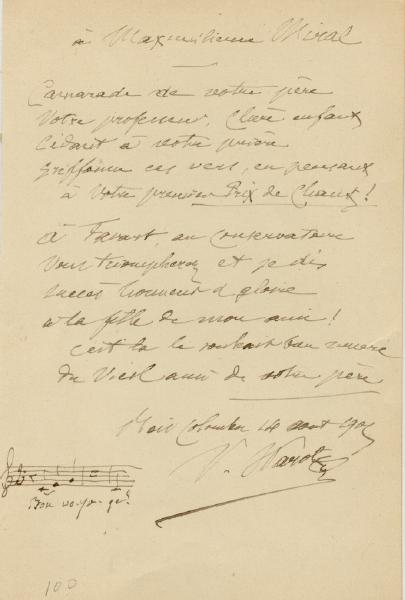 à Maximilienne Miral
Camarade de votre père
Votre professeur, Chère enfant
Cédant à votre prière
Griffonne ces vers, en pensant
à Votre premier Prix de Chant !
à Favart, au Conservatoire
Vous triompherez et je dis
succès honneur & gloire
à la fille de mon ami !
C'est là le souhait
du Vieil ami de votre père
Bois Colombes 14 août
V. Warot
Bon vo-ya-ge!
100